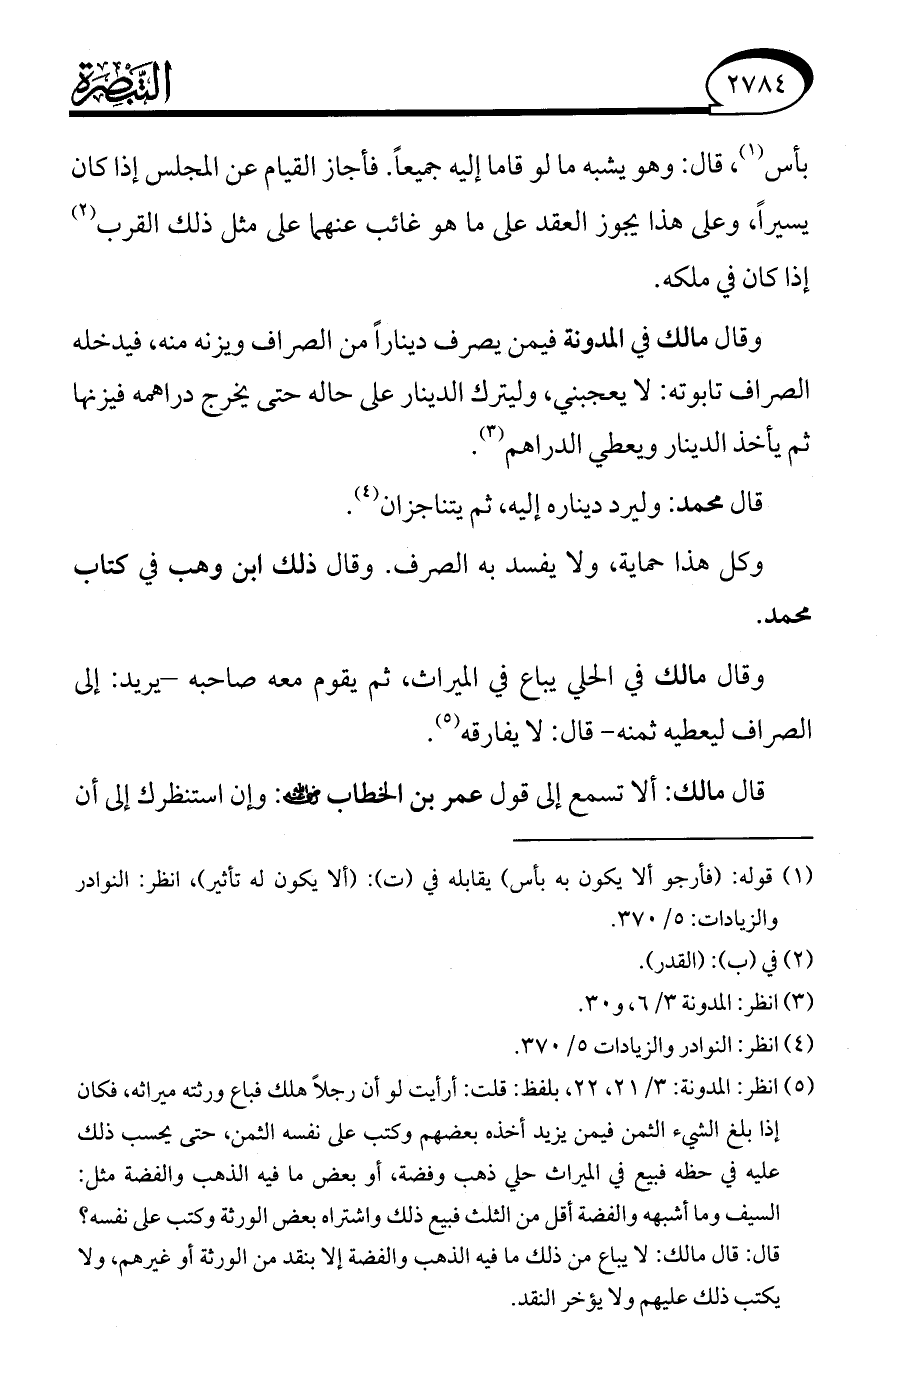 ٢٧٨٤
التبصرة
بأس(١)، قال: وهو يشبه ما لو قاما إليه جميعاً. فأجاز القيام عن المجلس إذا كان
يسيراً، وعلى هذا يجوز العقد على ما هو غائب عنهما على مثل ذلك القرب(٢)
إذا كان في ملكه.
وقال مالك في المدونة فيمن يصرف ديناراً من الصراف ويزنه منه، فيدخله
الصراف تابوته: لا يعجبني، وليترك الدينار على حاله حتى يخرج دراهمه فيزنها
ثم يأخذ الدينار ويعطي الدراهم(٣).
قال محمد: وليرد ديناره إليه، ثم يتناجزان(٤).
وكل هذا حماية، ولا يفسد به الصرف. وقال ذلك ابن وهب في كتاب
محمد.
وقال مالك في الحلي يباع في الميراث، ثم يقوم معه صاحبه –يريد: إلى
الصراف ليعطيه ثمنه– قال: لا يفارقه(٥).
قال مالك: ألا تسمع إلى قول عمر بن الخطاب: وإن استنظرك إلى أن
(١) قوله: (فأرجو ألا يكون به بأس) يقابله في (ت): (ألا يكون له تأثير)، انظر: النوادر
والزيادات: ٥/ ٣٧٠.
(٢) في (ب): (القدر).
(٣) انظر: المدونة ٣/ ٦، و٣٠.
(٤) انظر: النوادر والزيادات ٥/ ٣٧٠.
(٥) انظر: المدونة: ٣/ ٢١، ٢٢، بلفظ: قلت: أرأيت لو أن رجلاً هلك فباع ورثته ميراثه، فكان
إذا بلغ الشيء الثمن فيمن يزيد أخذه بعضهم وكتب على نفسه الثمن، حتى يحسب ذلك
عليه في حظه فبيع في الميراث حلي ذهب وفضة، أو بعض ما فيه الذهب والفضة مثل:
السيف وما أشبهه والفضة أقل من الثلث فبيع ذلك واشتراه بعض الورثة وكتب على نفسه؟
قال: قال مالك: لا يباع من ذلك ما فيه الذهب والفضة إلا بنقد من الورثة أو غيرهم، ولا
يكتب ذلك عليهم ولا يؤخر النقد.